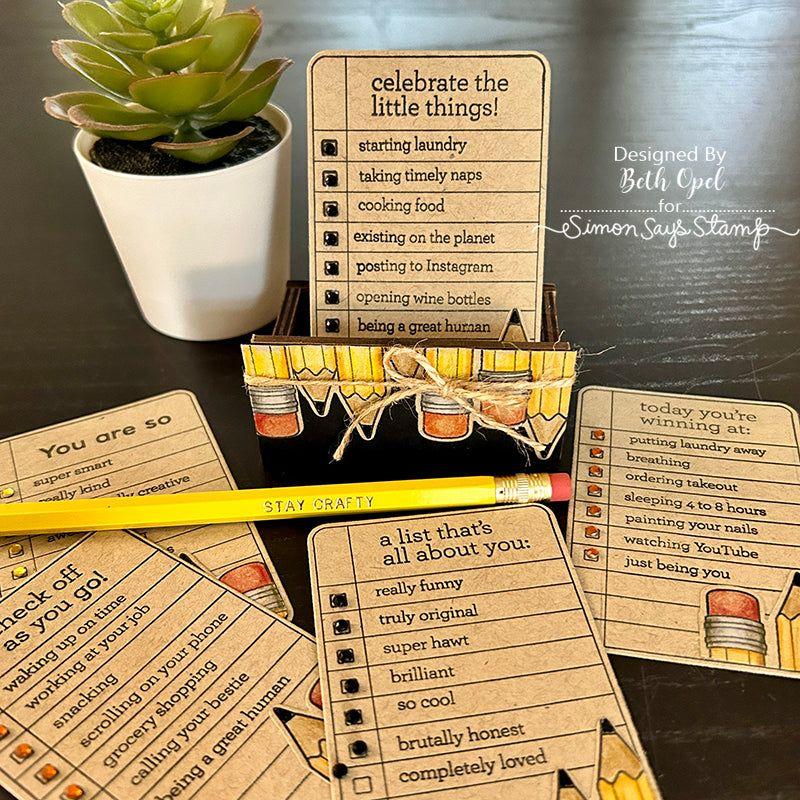 celebrate the
little things!
starting laundry
taking timely naps
cooking food
existing on the planet
posting to Instagram
opening wine bottles
being a great human
Designed By
Beth Opel
for
Simon Says Stamp
You are so
super smart
really kind
creative
STAY CRAFTY
today you're
winning at:
putting laundry away
breathing
ordering takeout
sleeping 4 to 8 hours
painting your nails
watching YouTube
just being you
check off
as you go!
waking up on time
working at your job
snacking
scrolling on your phone
grocery shopping
calling your bestie
being a great human
a list that's
all about you:
really funny
truly original
super hawt
brilliant
so cool
brutally honest
completely loved